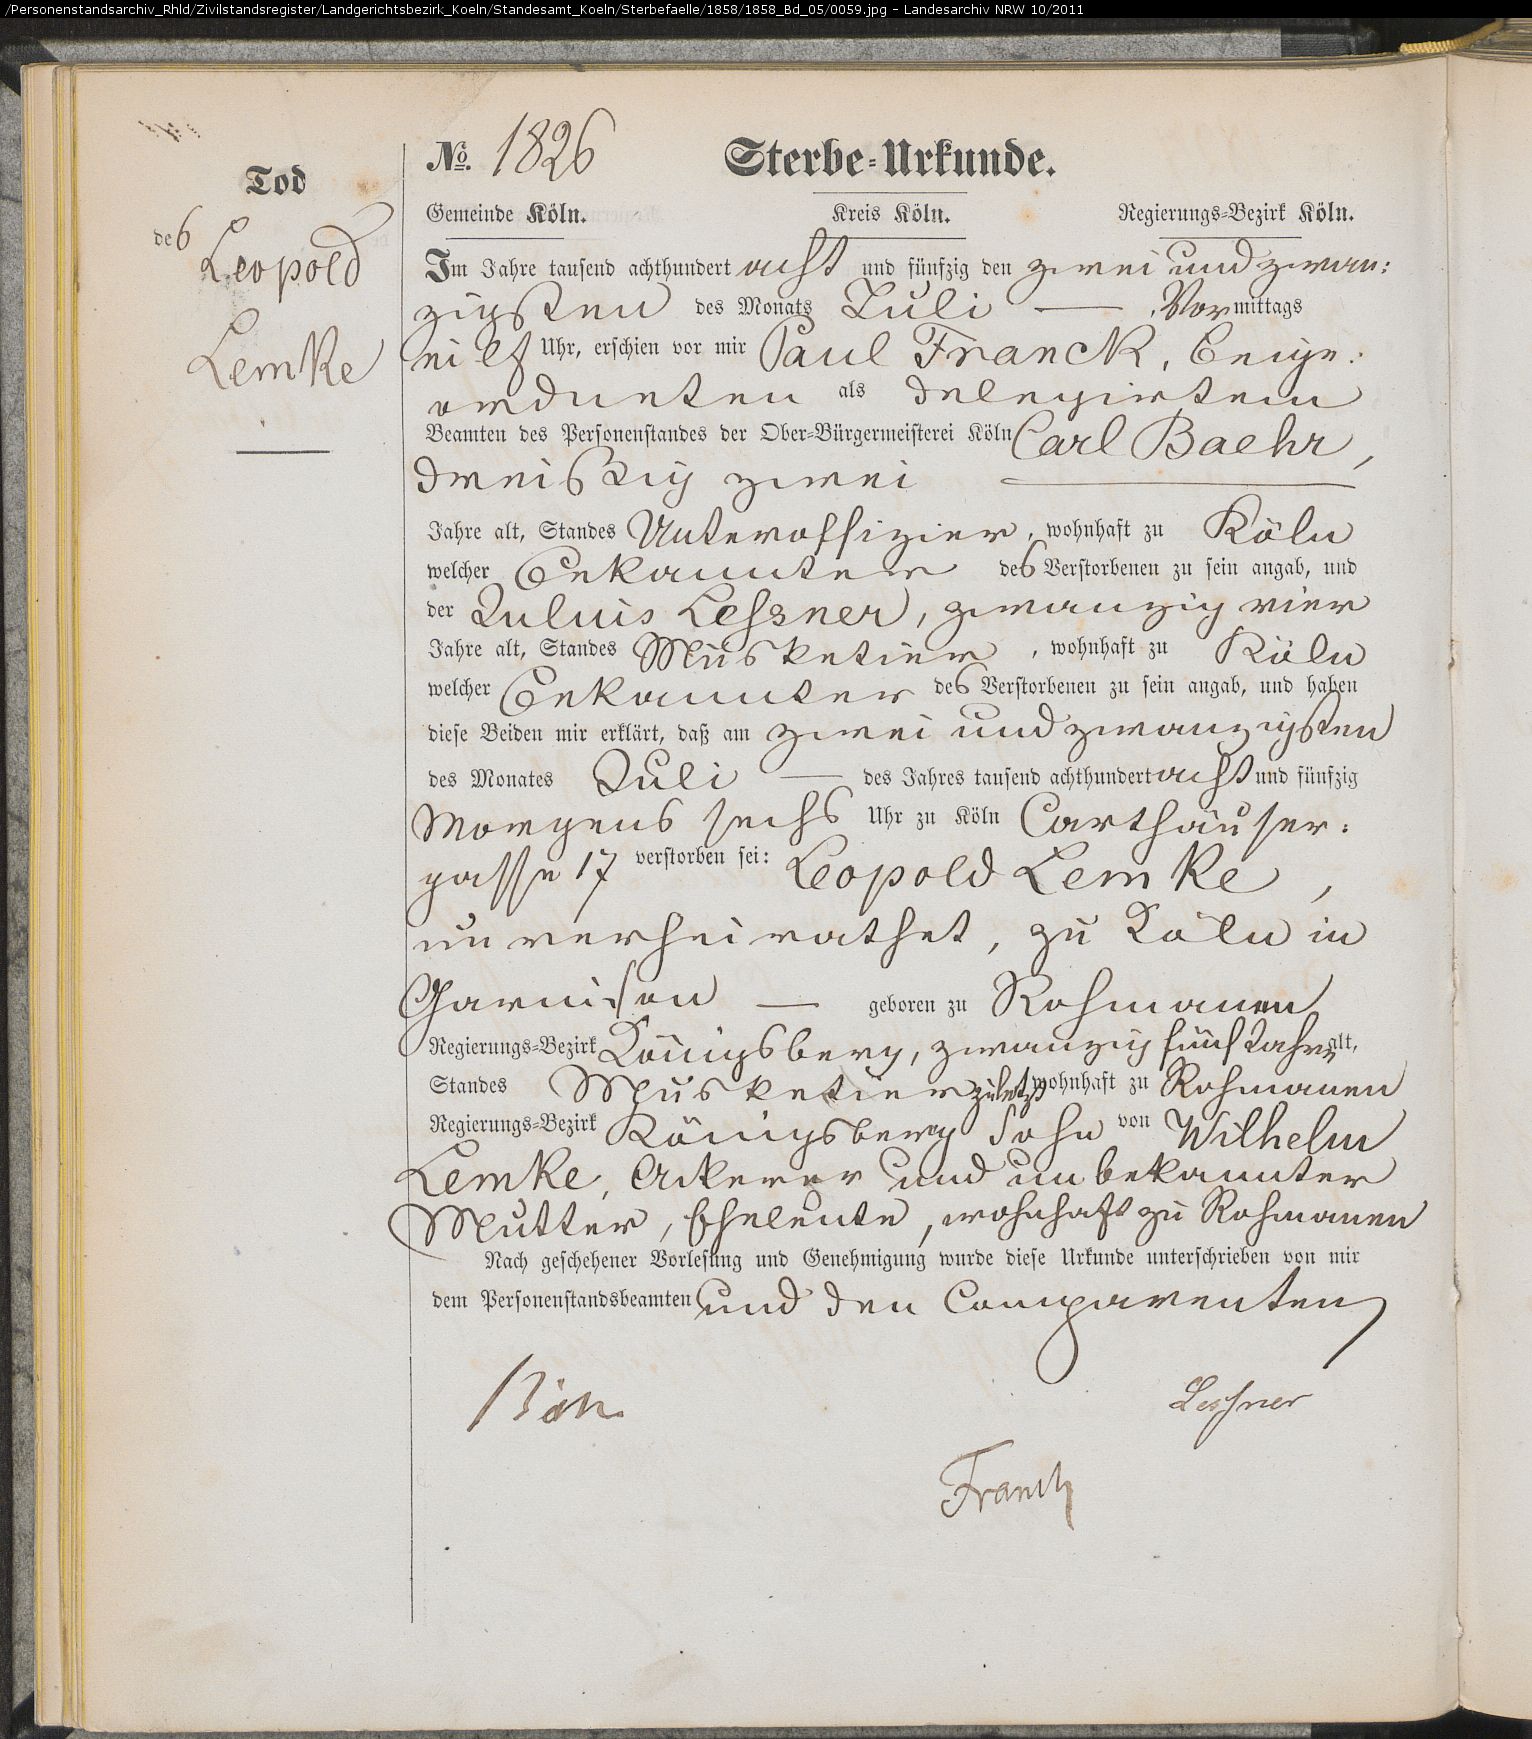 /Personenstandsarchiv_Rhld/Zivilstandsregister/Landgerichtsbezirk_Koeln/Standesamt_Koeln/Sterbefaelle/1858/1858_Bd_05/0059.jpg - Landesarchiv NRW 10/2011
Tod
des
Leopold
Lemke
No. 1826 Sterbe-Urkunde.
Gemeinde Köln. Kreis Köln. Regierungs-Bezirk Köln.
Im Jahre tausend achthundert acht und fünfzig den zwei und zwan:
zigsten des Monats Juli — , Vormittags
eilf Uhr, erschien vor mir Paul Franck, Beige:
ordneten als delegirtem
Beamten des Personenstandes der Ober-Bürgermeisterei Köln Carl Baehr,
dreißig zwei
Jahre alt, Standes Unteroffizier, wohnhaft zu Köln
welcher Bekannter des Verstorbenen zu sein angab, und
der Julius Lessner, zwanzig vier
Jahre alt, Standes Musketier, wohnhaft zu Köln
welcher Bekannter des Verstorbenen zu sein angab, und haben
diese Beiden mir erklärt, daß am zwei und zwanzigsten
des Monates Juli — des Jahres tausend achthundert acht und fünfzig
Morgens sechs Uhr zu Köln Carthäuser:
gasse 17 verstorben sei: Leopold Lemke,
unverheirathet, zu Köln in
Garnison — geboren zu Rohmanen
Regierungs-Bezirk Königsberg, zwanzig fünf Jahre alt,
Standes Musketier zuletzt wohnhaft zu Rohmanen
Regierungs-Bezirk Königsberg Sohn von Wilhelm
Lemke, Ackerer und unbekannter
Mutter, Eheleute, wohnhaft zu Rohmanen
Nach geschehener Vorlesung und Genehmigung wurde diese Urkunde unterschrieben von mir
dem Personenstandsbeamten und den Comparenten
Lessner
Franck